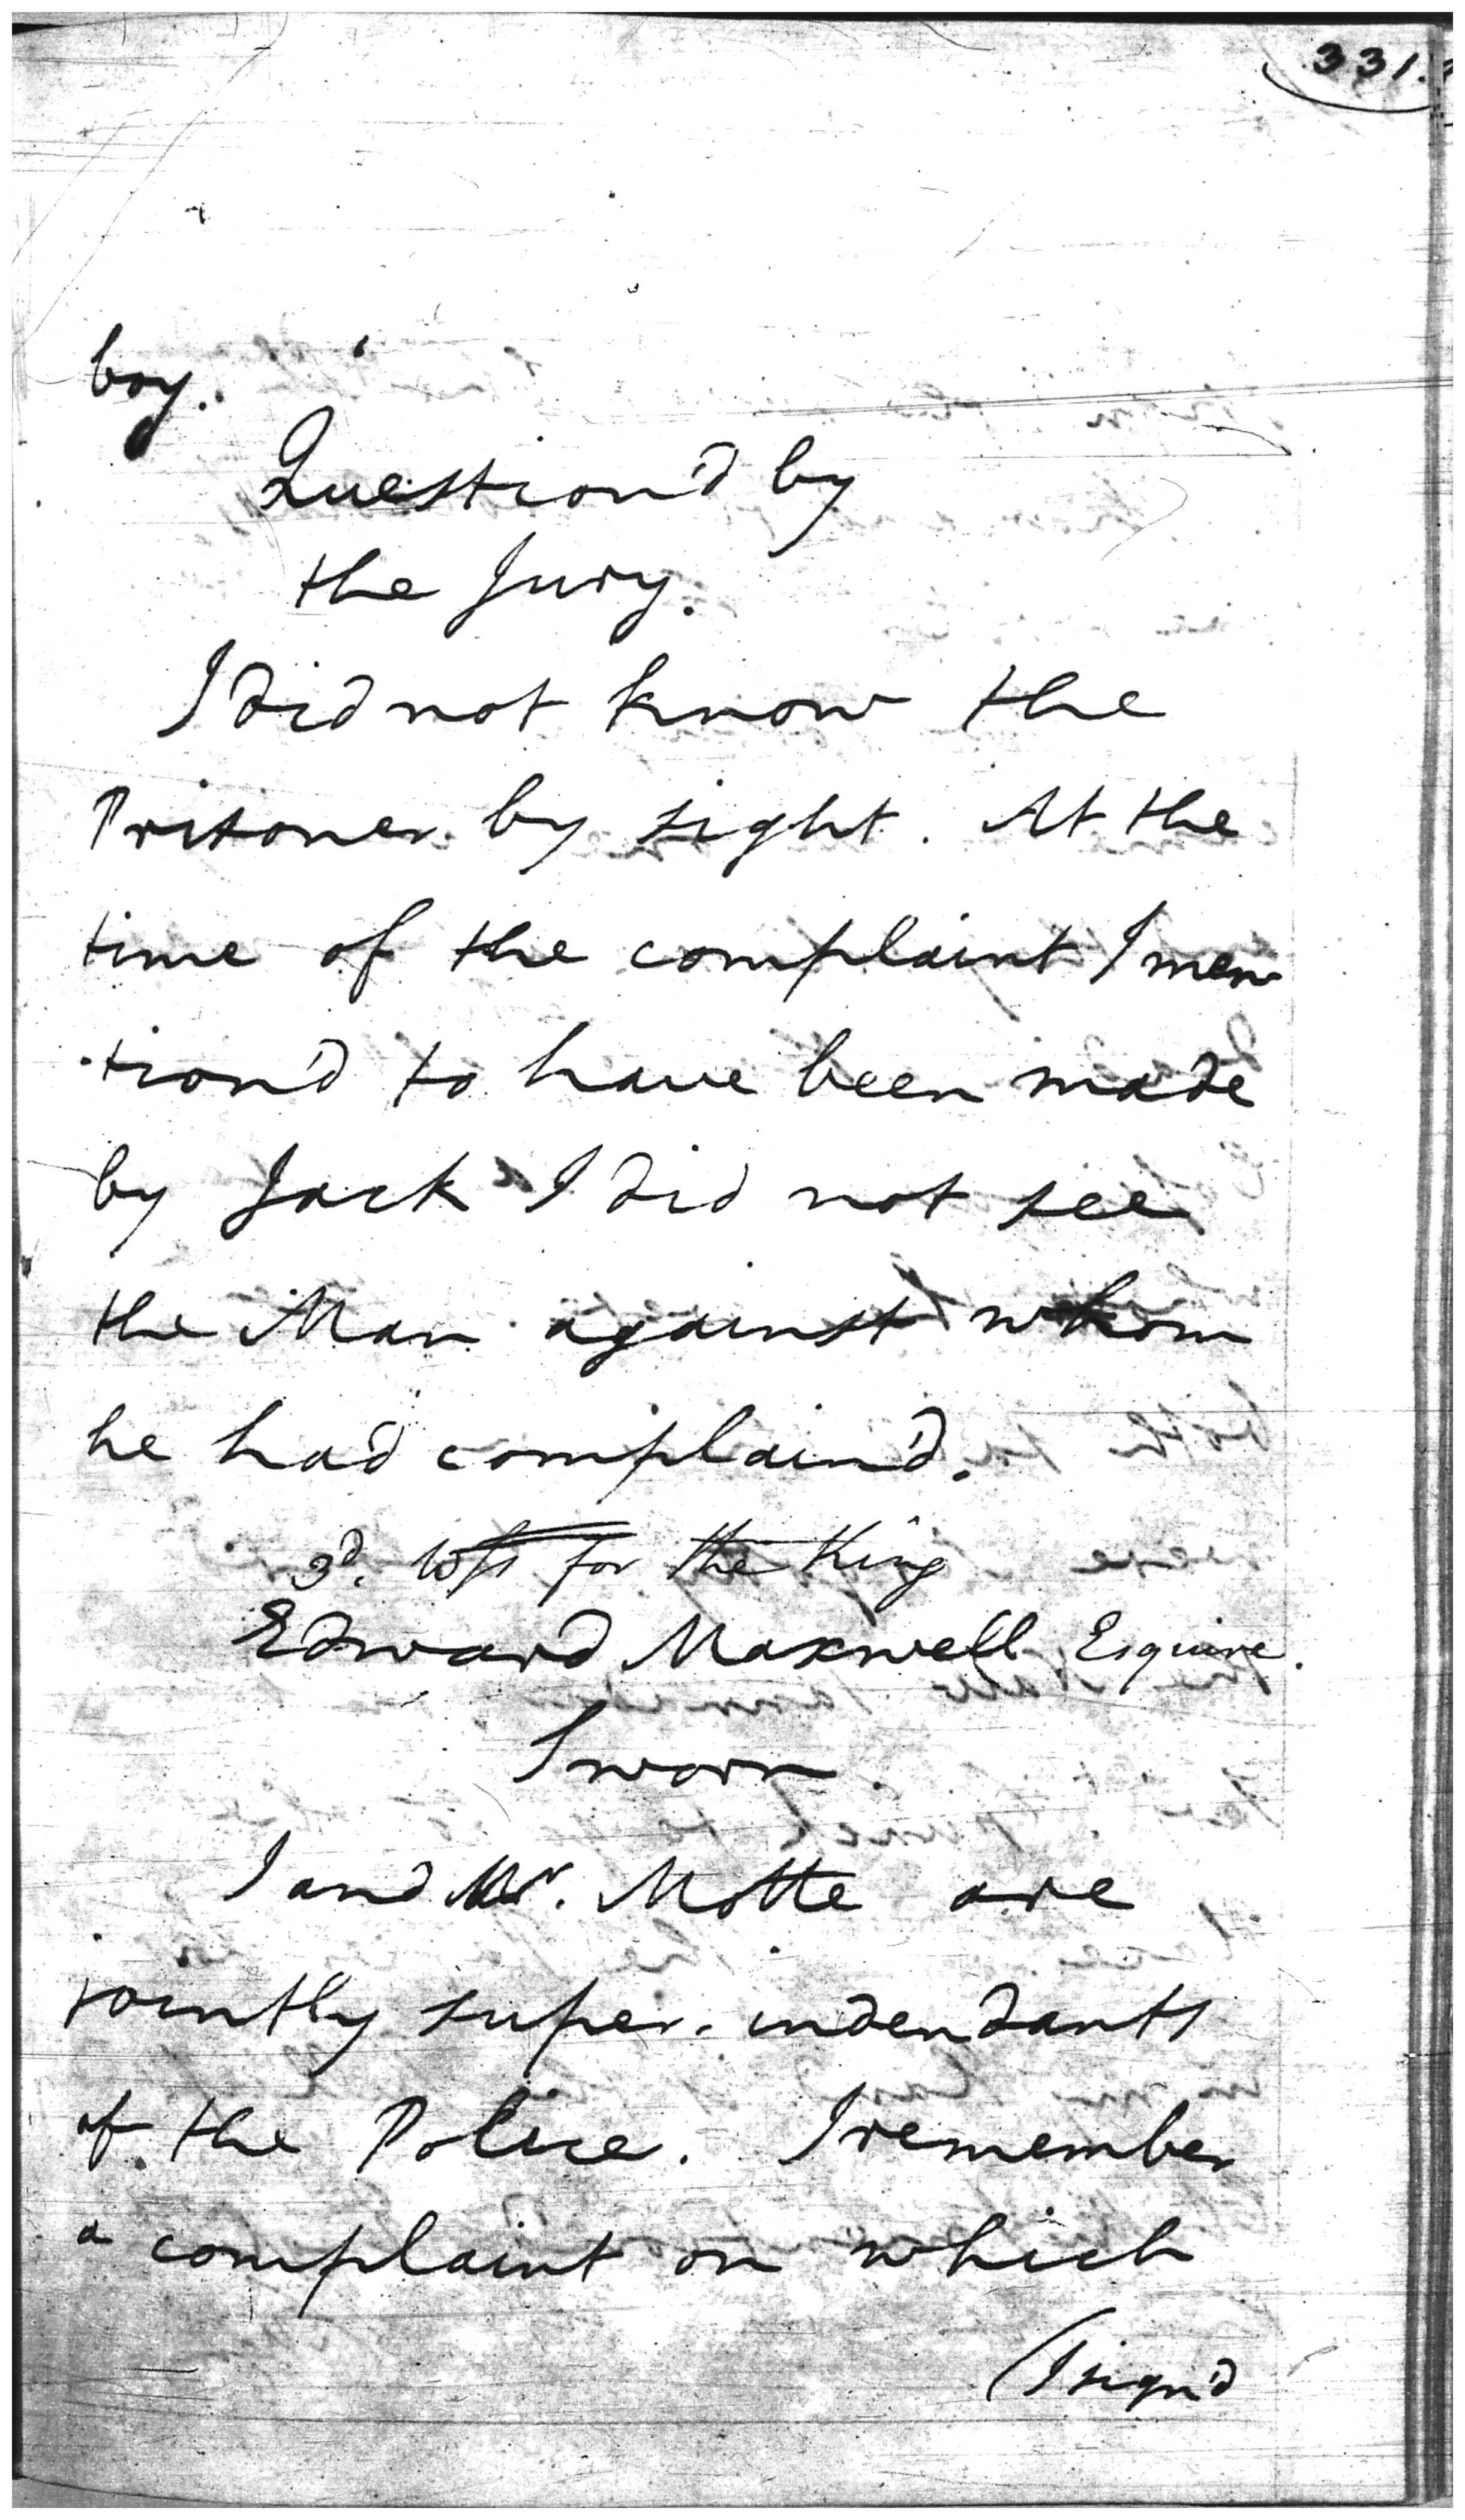 331.
boy.
Question'd by
the Jury.
I did not know the
Prisoner by sight. At the
time of the complaint I men
tion'd to have been made
by Jack I did not see
the Man against whom
he had complain'd.
3d. Wts for the King
Edward Maxwell Esquire.
Sworn
I and Mr. Motte are
jointly super-indendants
of the Police. I remember
a complaint on which
(I sign'd